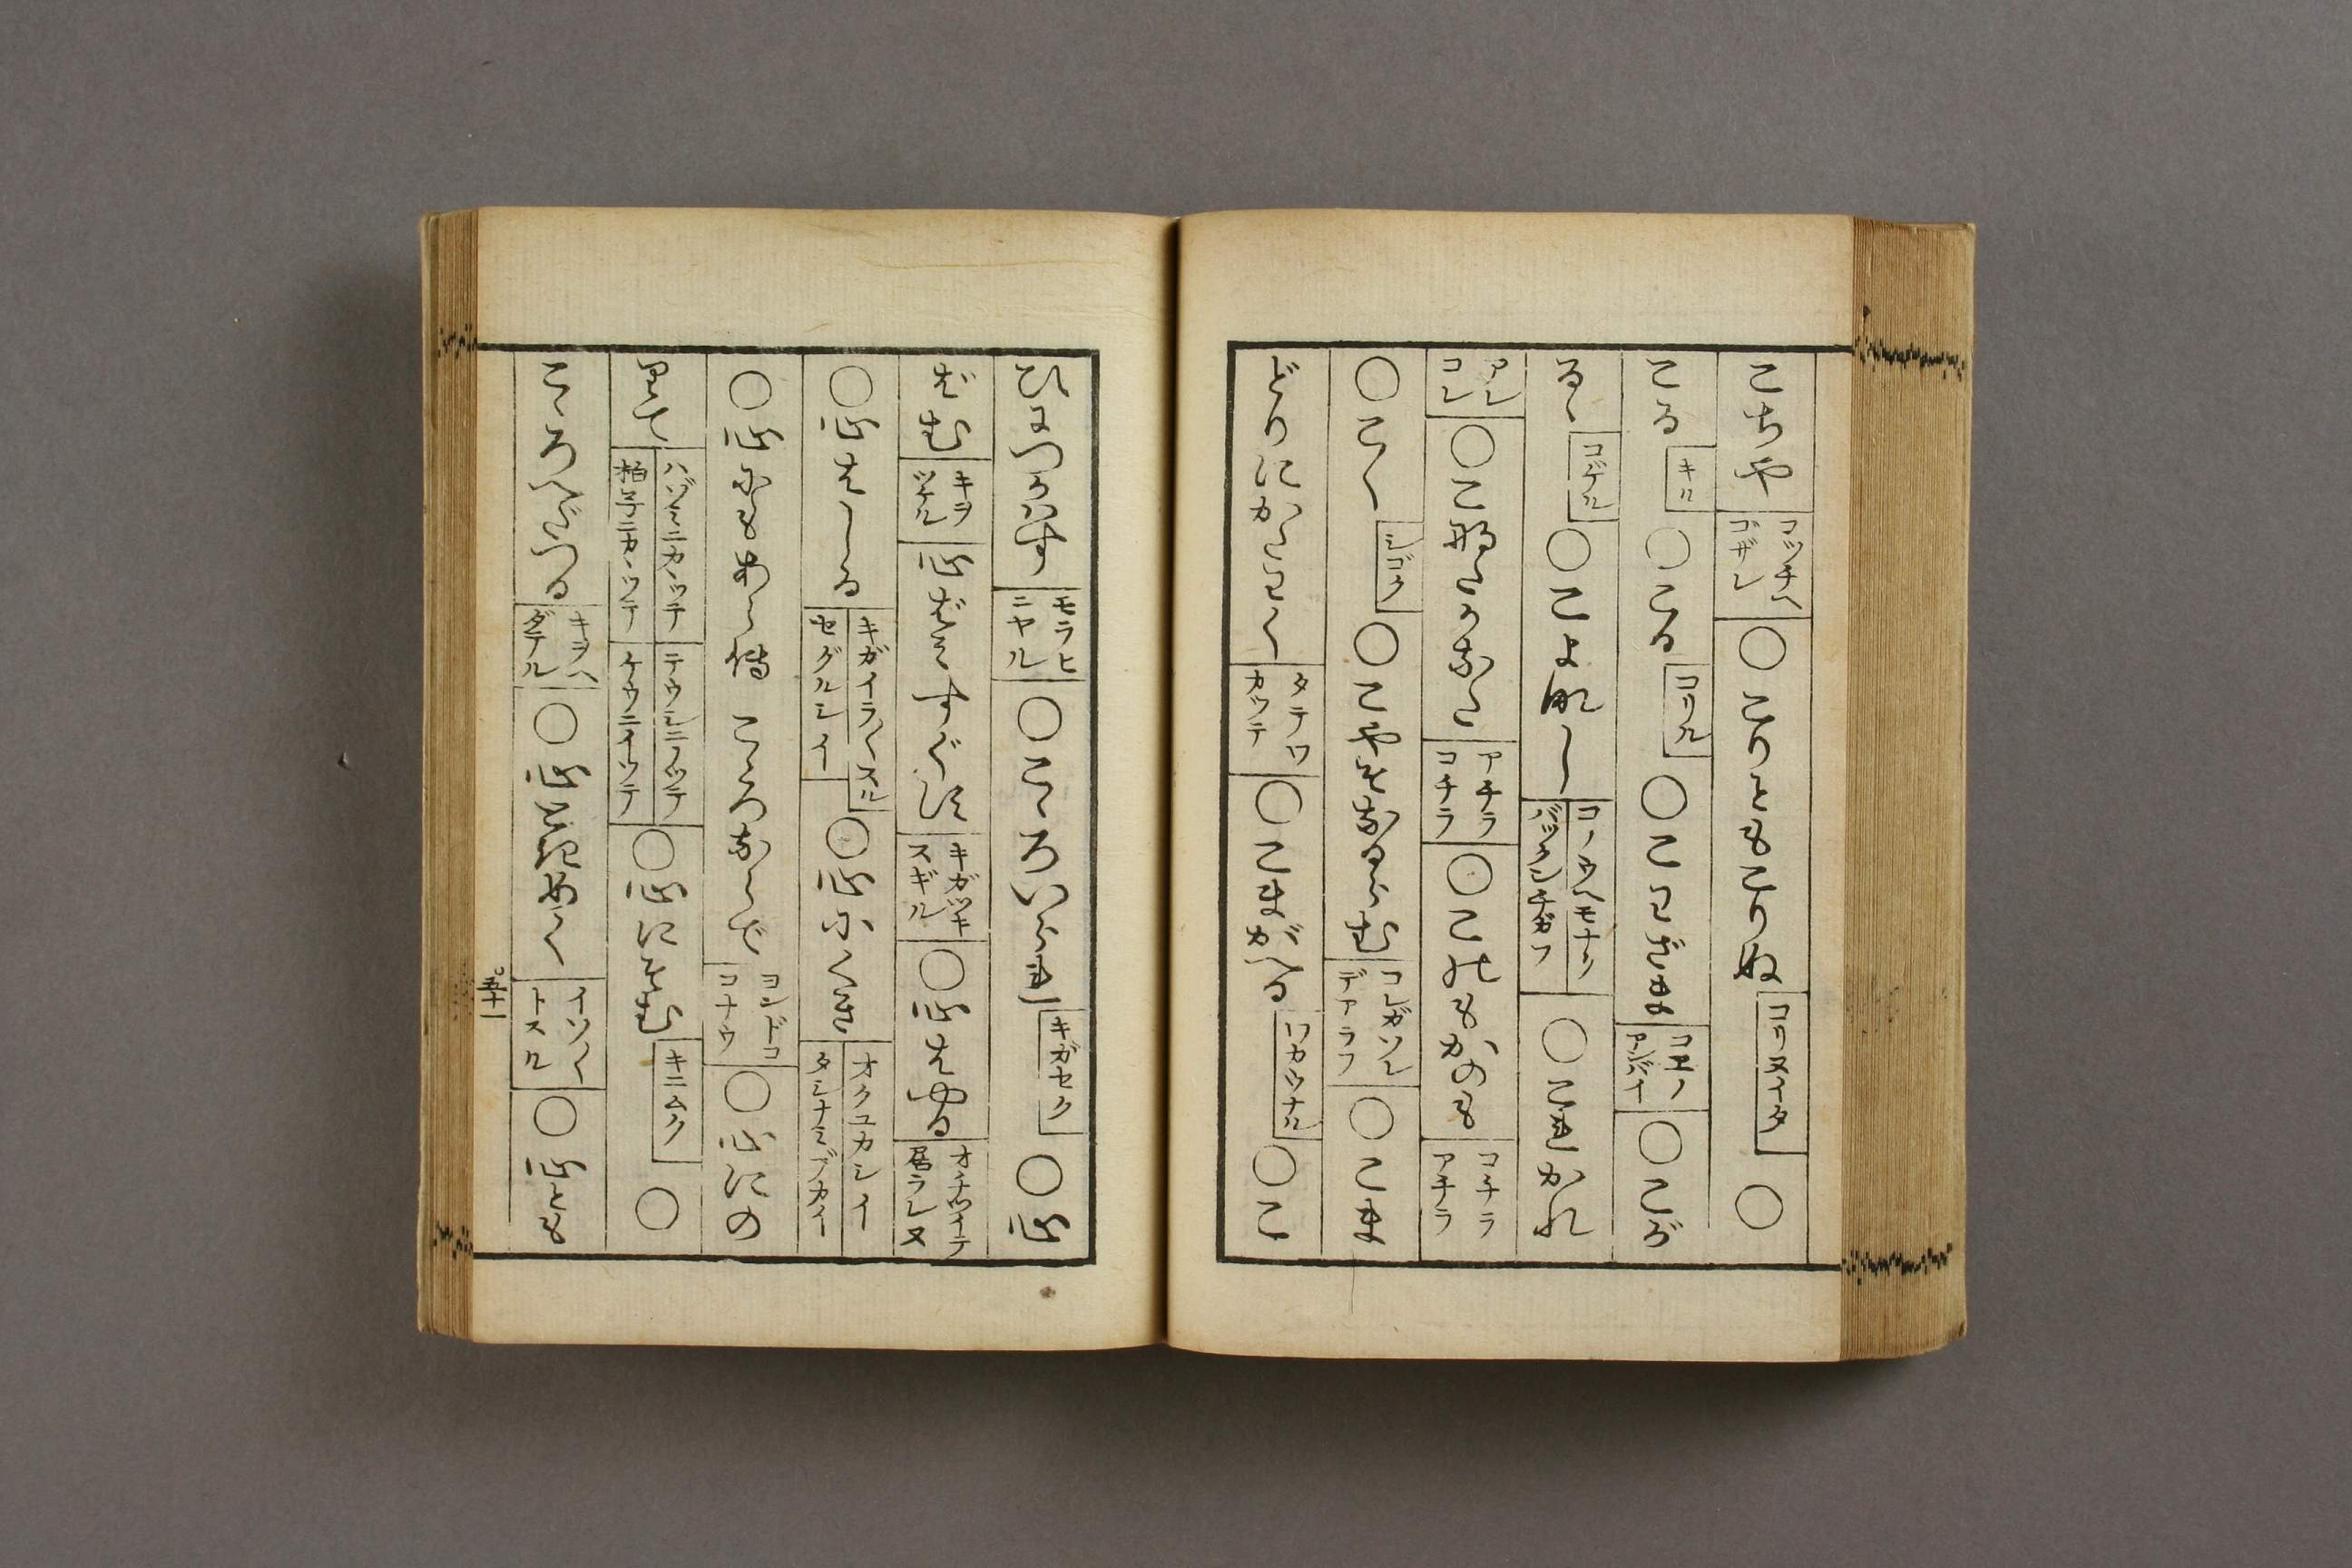 こちや コッチヘゴザレ ○こりともこりぬ コリヌイタ ○
こる キル ○こる コリル ○こわざま コエノアンバイ ○こが
るゝ コゲル ○こよなし コノウヘモナクバックンチガフ ○これかれ
アレコレ ○こなたかなた アチラコチラ ○こなもかのも コチラアチラ
○こく シゴク ○こやそなるらむ コレガソレデアラフ ○こま
どりにかたわく タテワカツテ ○こまがへる ワカウナル ○こ
ひにつかはす モラヒニヤル ○こゝろいられ キガセク ○心
ばむ キヲツケル 心ばみすぐに キガツキスギル ○心もゆる オチツイテ居ラレヌ
○心ばしる キガイラ〱スルセグルシイ ○心ふかき オクユカシイタシナミブカイ
○心にもあらず こゝろならで ヨンドコロナウ ○心にの
りて ハヅミニカヽツテ拍子ニカヽツテ テウシニノツテケウニイツテ ○心にそむ キニムク ○
こゝろへだつる キヲヘダテル ○心ときめく イソ〱トスル ○心とも
五十一